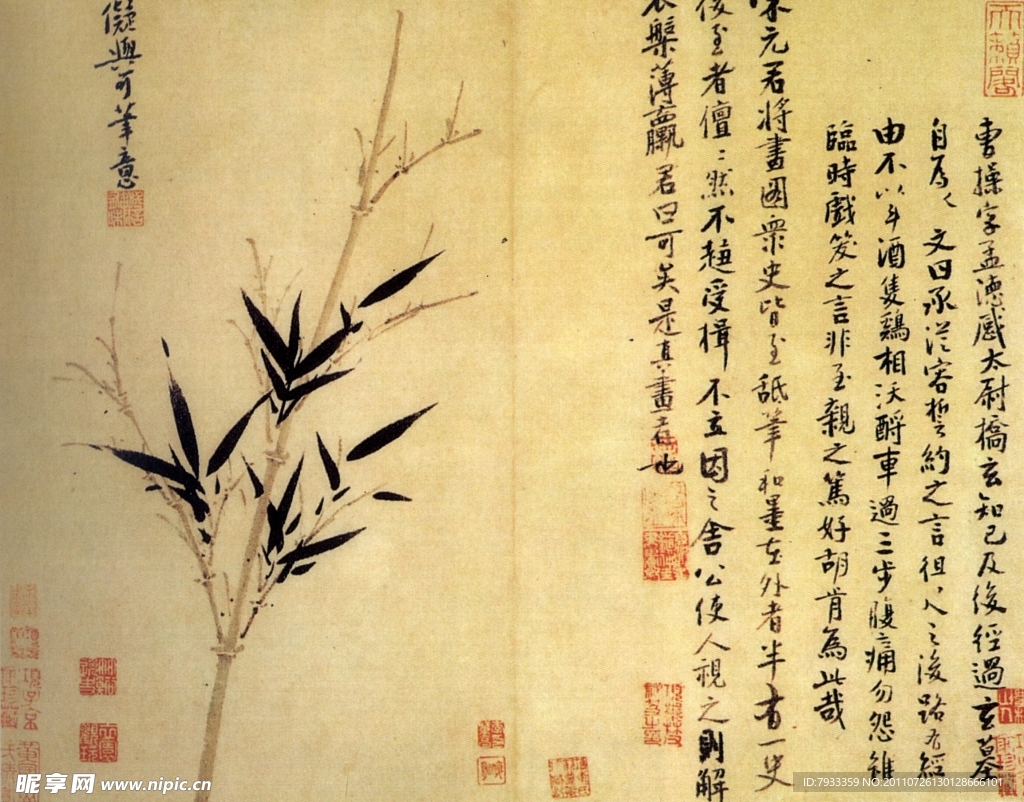 曹操字孟德感太尉橋玄知己及後經過玄墓
自為文曰承從容誓約之言徂之後路有經
由不以斗酒隻鷄相沃酹車過三步腹痛勿怨雖
臨時戲笑之言非至親之篤好胡肯為此哉
宋元君將畫圖衆史皆至舐筆和墨在外者半有一史
後至者儃〻然不趨受揖不立因之舍公使人視之則解
衣槃薄臝君曰可矣是真畫者也
儗與可筆意
天籟閣
昵享网 www.nipic.cn
ID:7933359 NO:20110726130128666101